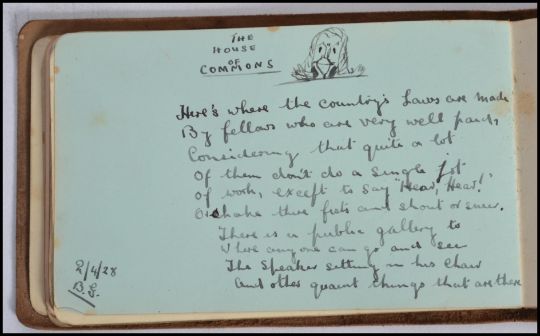 THE
HOUSE
OF
COMMONS
Here's where the country's Laws are made
By fellows who are very well paid,
Considering that quite a lot
Of them don't do a single jot
Of work, except to say "Hear, Hear!"
Or shake their fists and shout or sneer.
There is a public gallery to
Where anyone can go and see
The Speaker sitting in his Chair
And other quaint things that are there
2/4/28
B.G.